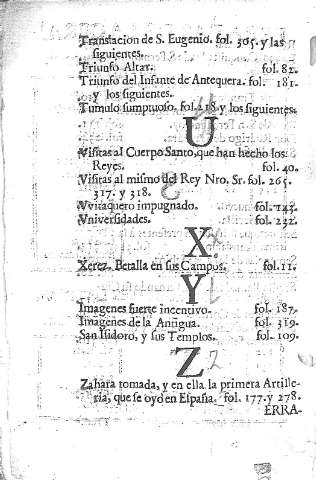 Translacion de S. Eugenio. fol. 305. y las
siguientes.
Triunfo Altar. fol. 82.
Triunfo del Infante de Antequera. fol. 181.
y los siguientes.
Tumulo sumptuoso. fol. 218. y los siguientes.
U
Visitas al Cuerpo Santo, que han hecho los
Reyes. fol. 40.
Visitas al mismo del Rey Nro. Sr. fol. 265.
317. y 318.
Vvitaquero impugnado. fol. 143.
Vniversidades. fol. 232.
X
Xerez. Batalla en sus Campos. fol. 11.
Y
Imagenes fuerte incentivo. fol. 187.
Imagenes de la Antigua. fol. 319.
San Isidoro, y sus Templos. fol. 109.
Z
Zahara tomada, y en ella la primera Artille-
ria, que se oyò en España. fol. 177. y 278.
ERRA-